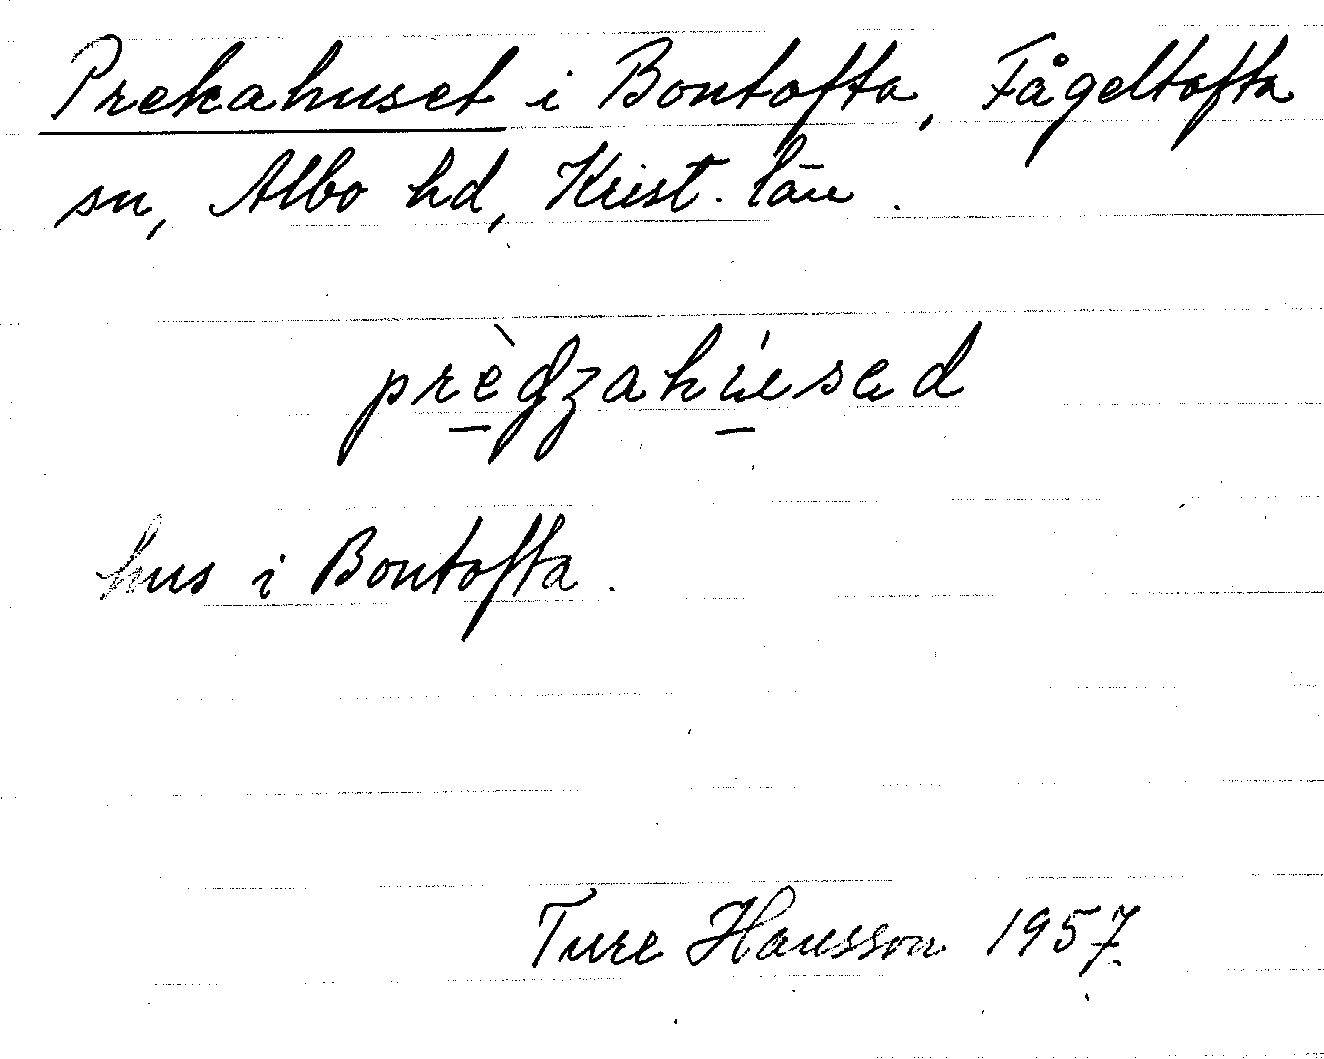 Prekahuset i Bontofta, Fågeltofta
sn, Albo hd, Krist. län.
prègzahúesed
hus i Bontofta.
Ture Hansson 1957.